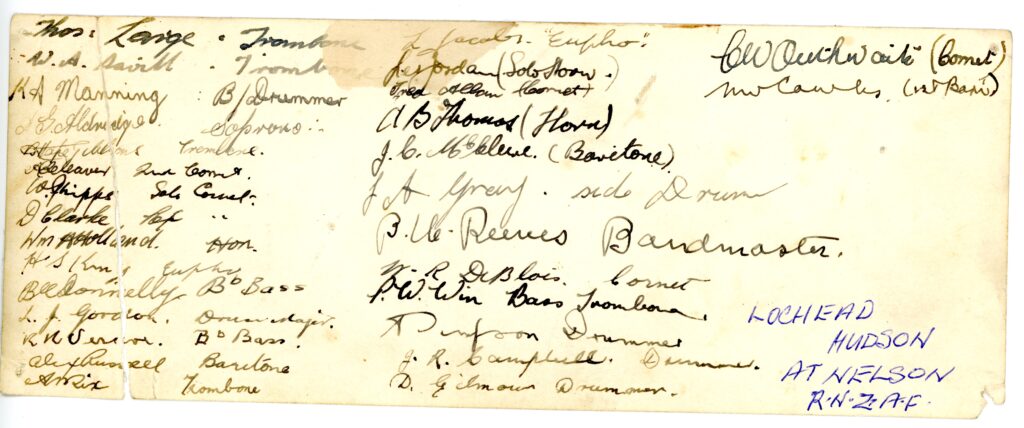 Thos: Large - Trombone
W. A. Savill - Trombone
K A Manning : B/Drummer
J G Aldridge. Soprano :-
Gibbons Trombone.
A Cleaver 2nd Cornet.
W. Phipps Solo Cornet.
D Clarke Rep "
Wm Holland. Hon.
H S King Eupho
B Donnelly Bb Bass
L. J. Gordon. Drum Major.
R R Vernon. Bb Bass.
Alex Bunsell Baritone
A Rix Trombone
L Jacobs. "Eupho".
J. Jordan (Solo Horn.)
Fred Allan (Cornet)
A B Thomas (Horn)
J. C. McClure. (Baritone)
J A Gray. side Drum
B. H. Reeves Bandmaster.
W. R DeBlois. Cornet
P. W. Win Bass Trombone.
Simpson Drummer
J. R. Campbell. Drummer.
D. Gilmour Drummer.
CW Outhwaite (Cornet)
(1st Bari)
LOCHEAD
HUDSON
AT NELSON
R.N.Z.A.F.